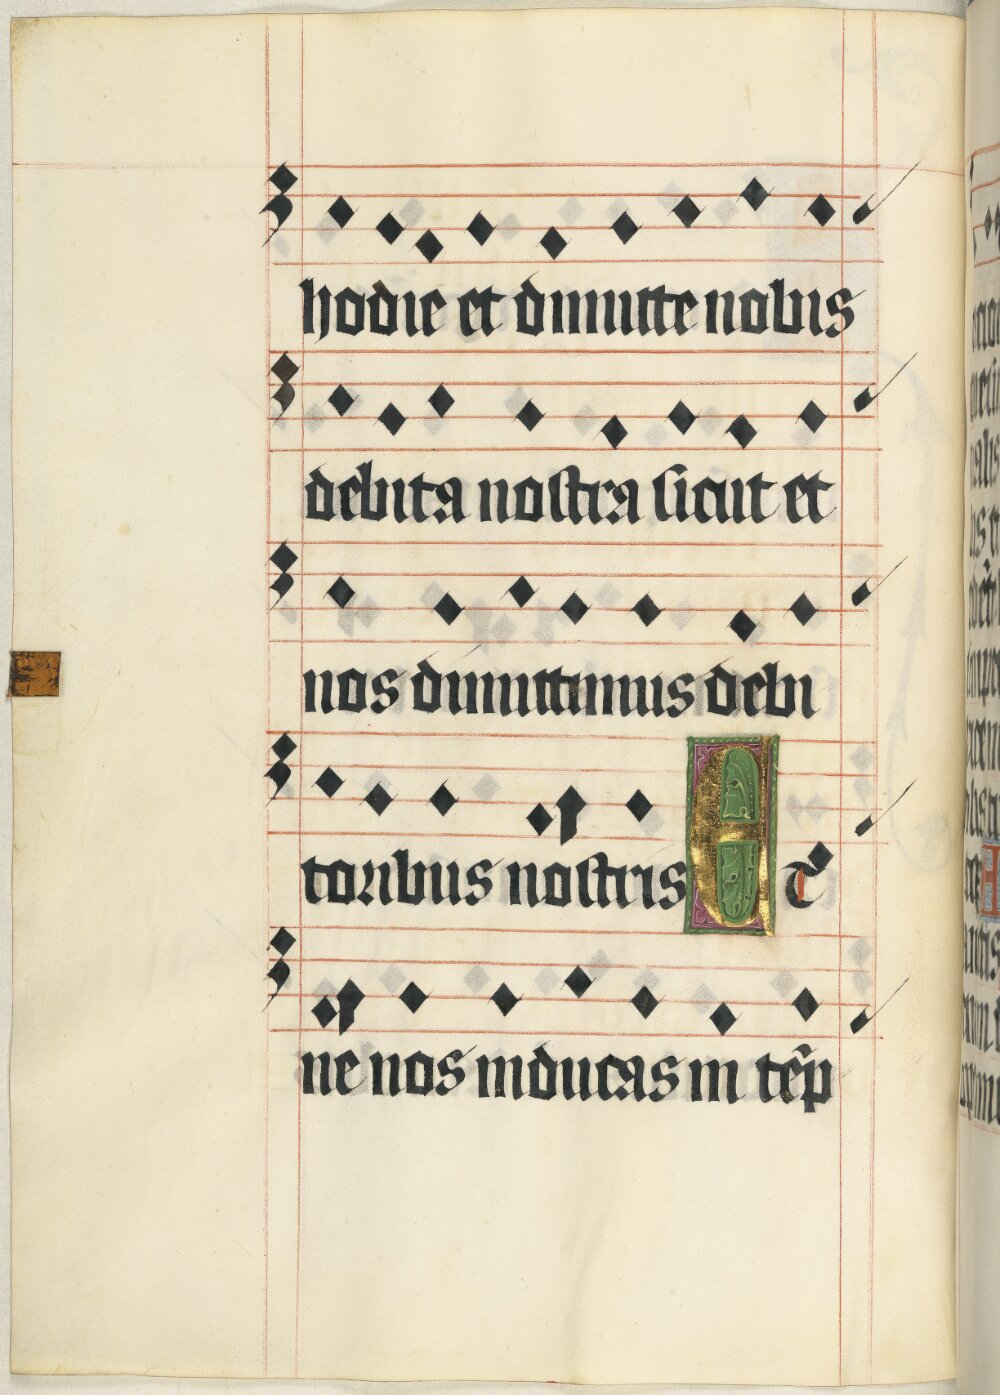 hodie et dimitte nobis
debita nostra sicut et
nos dimittimus debi
toribus nostris ET
ne nos inducas in te̅p